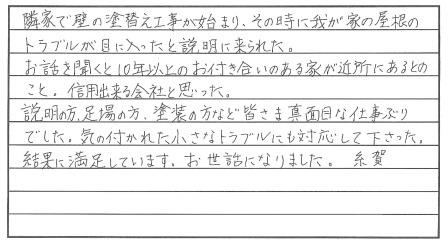 隣家で壁の塗替え工事が始まり、その時に我が家の屋根の
トラブルが目に入ったと説明に来られた。
お話を聞くと10年以上のお付き合いのある家が近所にあるとの
こと。信用出来る会社と思った。
説明の方、足場の方、塗装の方など皆さま真面目な仕事ぶり
でした。気の付かれた小さなトラブルにも対応して下さった。
結果に満足しています。お世話になりました。 糸賀